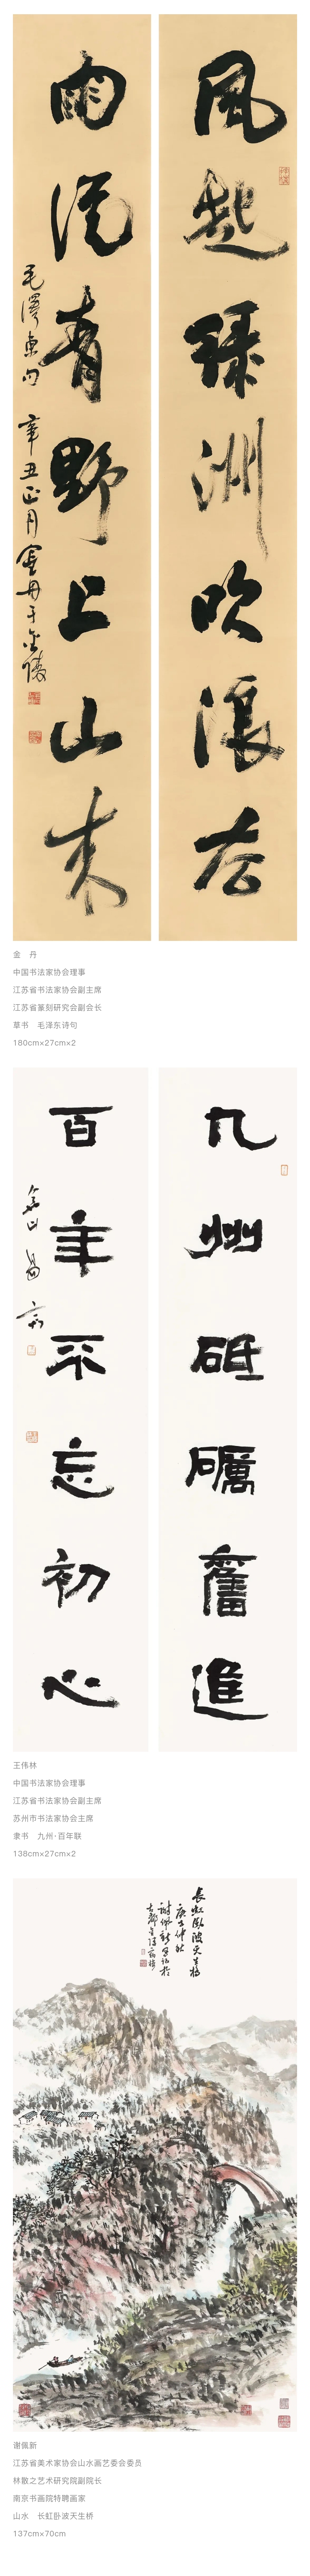 風起綠洲吹浪去
雨從青野上山來
毛澤東句 辛丑正月金丹于金陵
金 丹
中国书法家协会理事
江苏省书法家协会副主席
江苏省篆刻研究会副会长
草书 毛泽东诗句
180cm×27cm×2
九州砥礪奮進
百年不忘初心
王伟林
中国书法家协会理事
江苏省书法家协会副主席
苏州市书法家协会主席
隶书 九州·百年联
138cm×27cm×2
長虹臥波天生橋
庚子仲秋
謝佩新寫於
謝佩新
江苏省美术家协会山水画艺委会委员
林散之艺术研究院副院长
南京书画院特聘画家
山水 长虹卧波天生桥
137cm×70cm